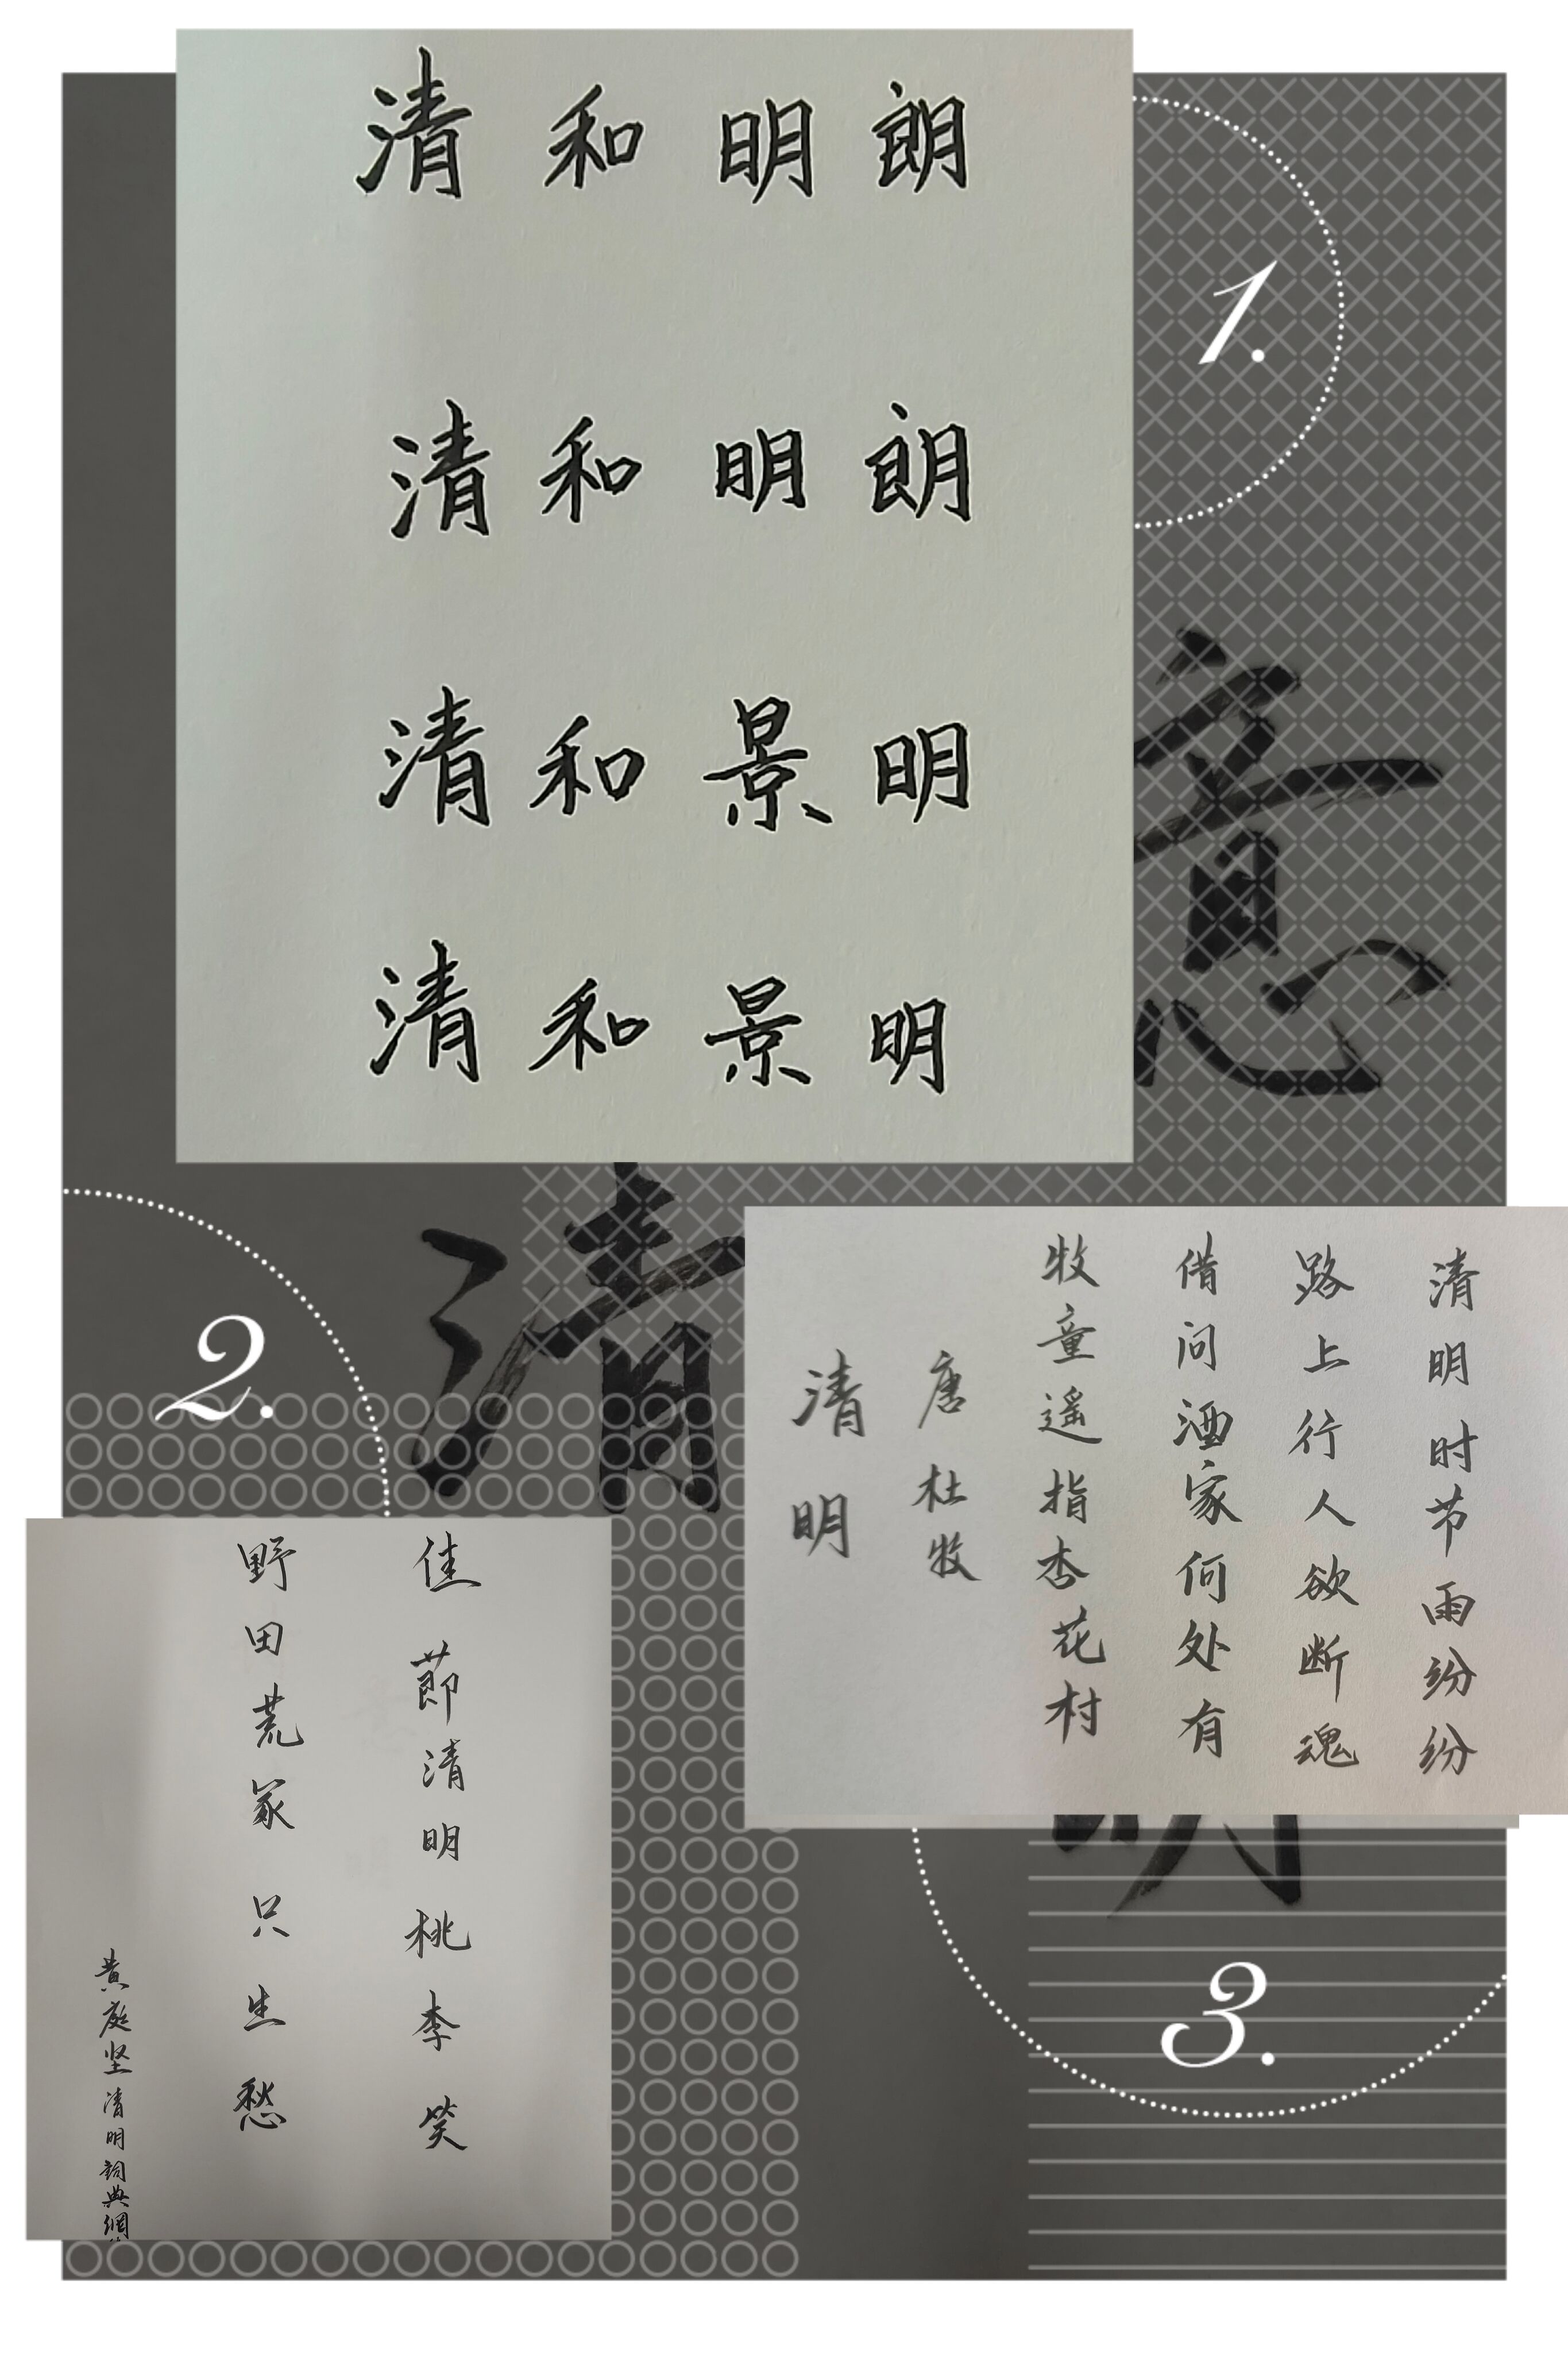 清和明朗
清和明朗
清和景明
清和景明
1.
意
清
2.
清明时节雨纷纷
路上行人欲断魂
借问酒家何处有
牧童遥指杏花村
唐杜牧
清明
佳莭清明桃李笑
野田荒冢只生愁
黄庭坚清明詞典網
明
3.